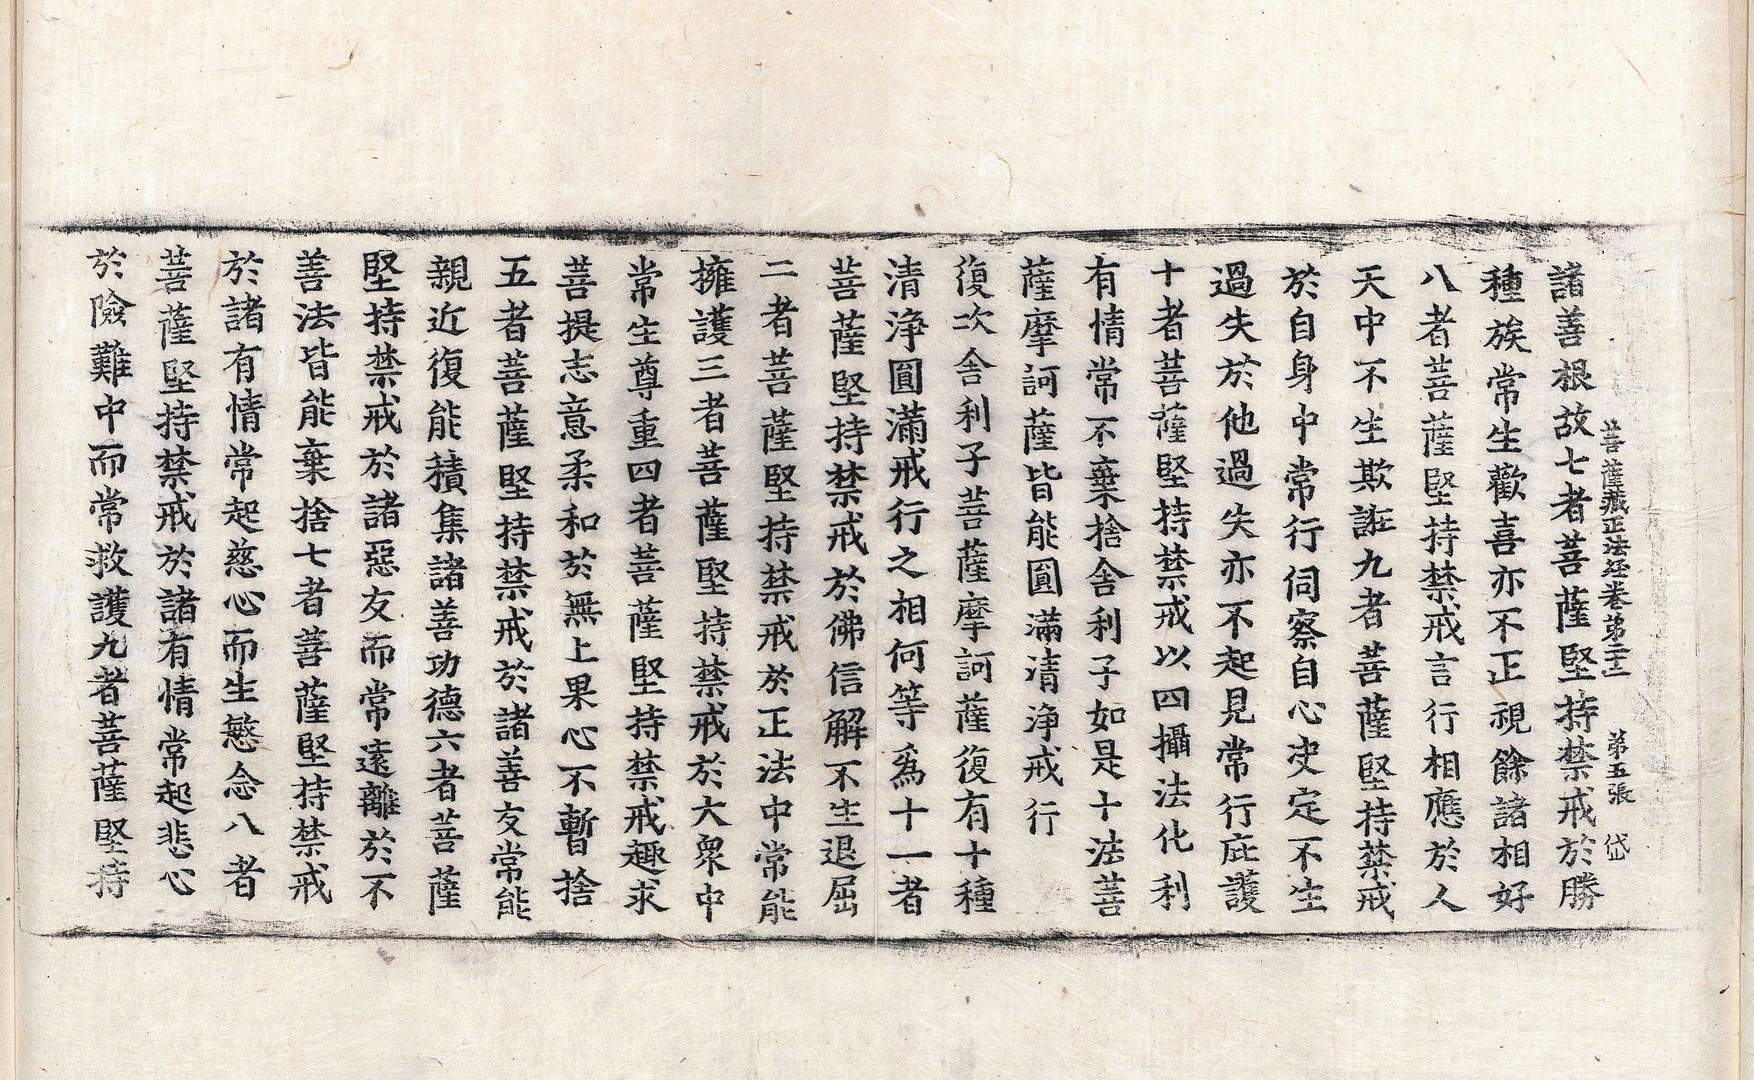 菩薩藏正法経卷第二十二 第五張 岱
諸善根故七者菩薩堅持禁戒於勝
種族常生歡喜亦不正視餘諸相好
八者菩薩堅持禁戒言行相應於人
天中不生欺誑九者菩薩堅持禁戒
於自身中常行伺察自心决定不生
過失於他過失亦不起見常行庇護
十者菩薩堅持禁戒以四攝法化利
有情常不棄捨舍利子如是十法菩
薩摩訶薩皆能圓滿清淨戒行
復次舍利子菩薩摩訶薩復有十種
清淨圓滿戒行之相何等爲十一者
菩薩堅持禁戒於佛信解不生退屈
二者菩薩堅持禁戒於正法中常能
擁護三者菩薩堅持禁戒於大衆中
常生尊重四者菩薩堅持禁戒趣求
菩提志意柔和於無上果心不暫捨
五者菩薩堅持禁戒於諸善友常能
親近復能積集諸善功德六者菩薩
堅持禁戒於諸惡友而常遠離於不
善法皆能棄捨七者菩薩堅持禁戒
於諸有情常起慈心而生慜念八者
菩薩堅持禁戒於諸有情常起悲心
於險難中而常救護九者菩薩堅持